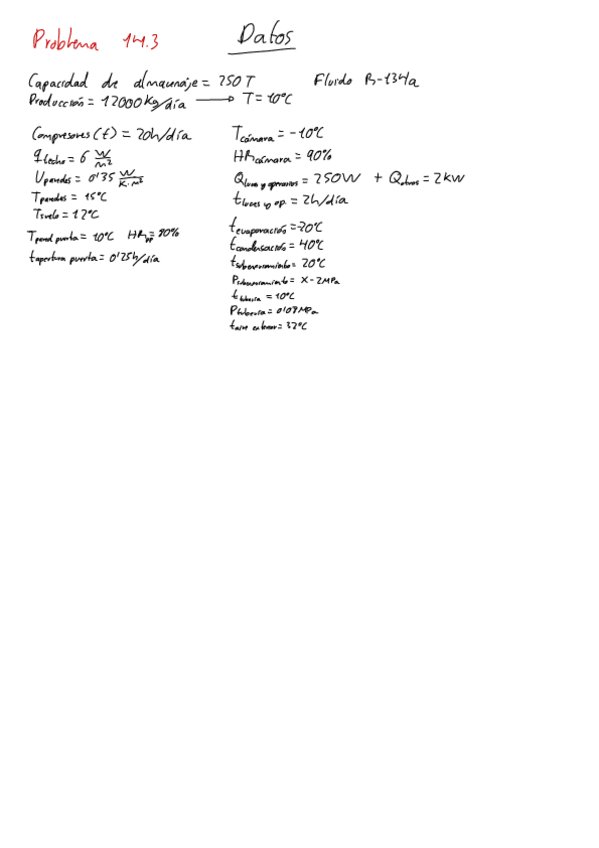 Problema 14.3
Datos
Capacidad de almacenaje = 250 T Fluido R-134a
Producción = 12000 Kg/día → T = 10ºC
Compresores (t) = 20h/día
q techo = 6 W/m²
U paredes = 0'35 W/K·m²
T paredes = 15ºC
T suelo = 12ºC
T pared puerta = 10ºC HR pp = 80%
t apertura puerta = 0'25h/día
T cámara = -10ºC
HR cámara = 90%
Q luces y operarios = 250W + Q otros = 2kW
t luces y op. = 2h/día
t evaporación = -20ºC
t condensación = 40ºC
t subenfriamiento = 20ºC
P = X-2MPa
t tubería = 10ºC
P tubería = 0'08MPa
t aire exterior = 32ºC